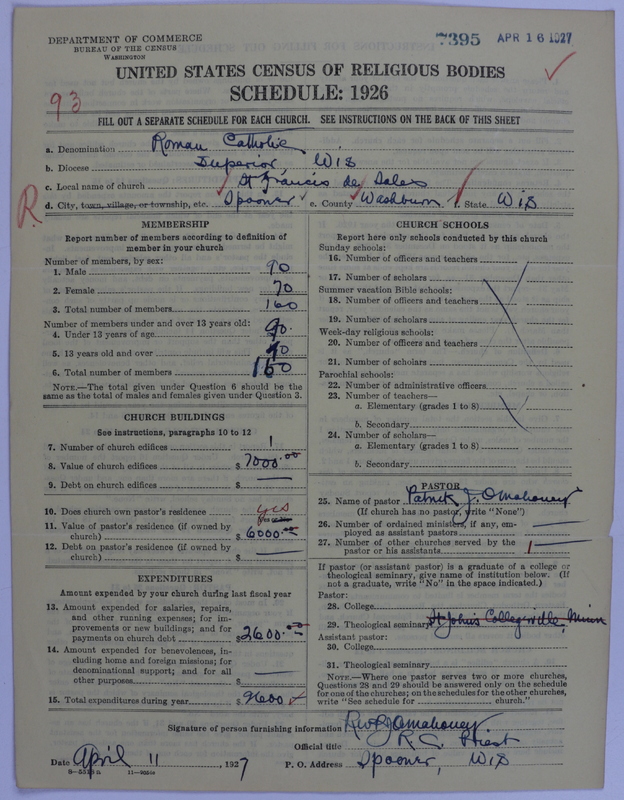 DEPARTMENT OF COMMERCE
BUREAU OF THE CENSUS
WASHINGTON
7395 APR 16 1927
UNITED STATES CENSUS OF RELIGIOUS BODIES
SCHEDULE: 1926
93
FILL OUT A SEPARATE SCHEDULE FOR EACH CHURCH. SEE INSTRUCTIONS ON THE BACK OF THIS SHEET
a. Denomination Roman Catholic
b. Diocese Superior, Wis
c. Local name of church St Francis de Sales
R d. City, town, village, or township, etc. Spooner e. County Washburn f. State Wis
MEMBERSHIP
Report number of members according to definition of
member in your church
Number of members, by sex:
1. Male 90
2. Female 70
3. Total number of members 160
Number of members under and over 13 years old:
4. Under 13 years of age
5. 13 years old and over
6. Total number of members 160
NOTE.—The total given under Question 6 should be the
same as the total of males and females given under Question 3.
CHURCH BUILDINGS
See instructions, paragraphs 10 to 12
7. Number of church edifices 1
8. Value of church edifices $ 7000.00
9. Debt on church edifices $ —
10. Does church own pastor's residence yes
11. Value of pastor's residence (if owned by
church) $ 6000.00
12. Debt on pastor's residence (if owned by
church) $ —
EXPENDITURES
Amount expended by your church during last fiscal year
13. Amount expended for salaries, repairs,
and other running expenses; for im-
provements or new buildings; and for
payments on church debt $ 2600.00
14. Amount expended for benevolences, in-
cluding home and foreign missions; for
denominational support; and for all
other purposes $ —
15. Total expenditures during year $ 2600
CHURCH SCHOOLS
Report here only schools conducted by this church
Sunday schools:
16. Number of officers and teachers
17. Number of scholars
Summer vacation Bible schools:
18. Number of officers and teachers
19. Number of scholars
Week-day religious schools:
20. Number of officers and teachers
21. Number of scholars
Parochial schools:
22. Number of administrative officers
23. Number of teachers—
a. Elementary (grades 1 to 8)
b. Secondary
24. Number of scholars—
a. Elementary (grades 1 to 8)
b. Secondary
PASTOR
25. Name of pastor Patrick J. Omahoney
(If church has no pastor, write "None")
26. Number of ordained ministers, if any, em-
ployed as assistant pastors —
27. Number of other churches served by the
pastor or his assistants 1
If pastor (or assistant pastor) is a graduate of a college or
theological seminary, give name of institution below. (If
not a graduate, write "No" in the space indicated.)
Pastor:
28. College
29. Theological seminary St Johns Collegeville, Minn
Assistant pastor:
30. College
31. Theological seminary
NOTE.—Where one pastor serves two or more churches,
Questions 28 and 29 should be answered only on the schedule
for one of the churches; on the schedules for the other churches,
write "See schedule for church."
Signature of person furnishing information Rev P J Omahoney
Official title R C Priest
Date April 11, 1927 P. O. Address Spooner, Wis